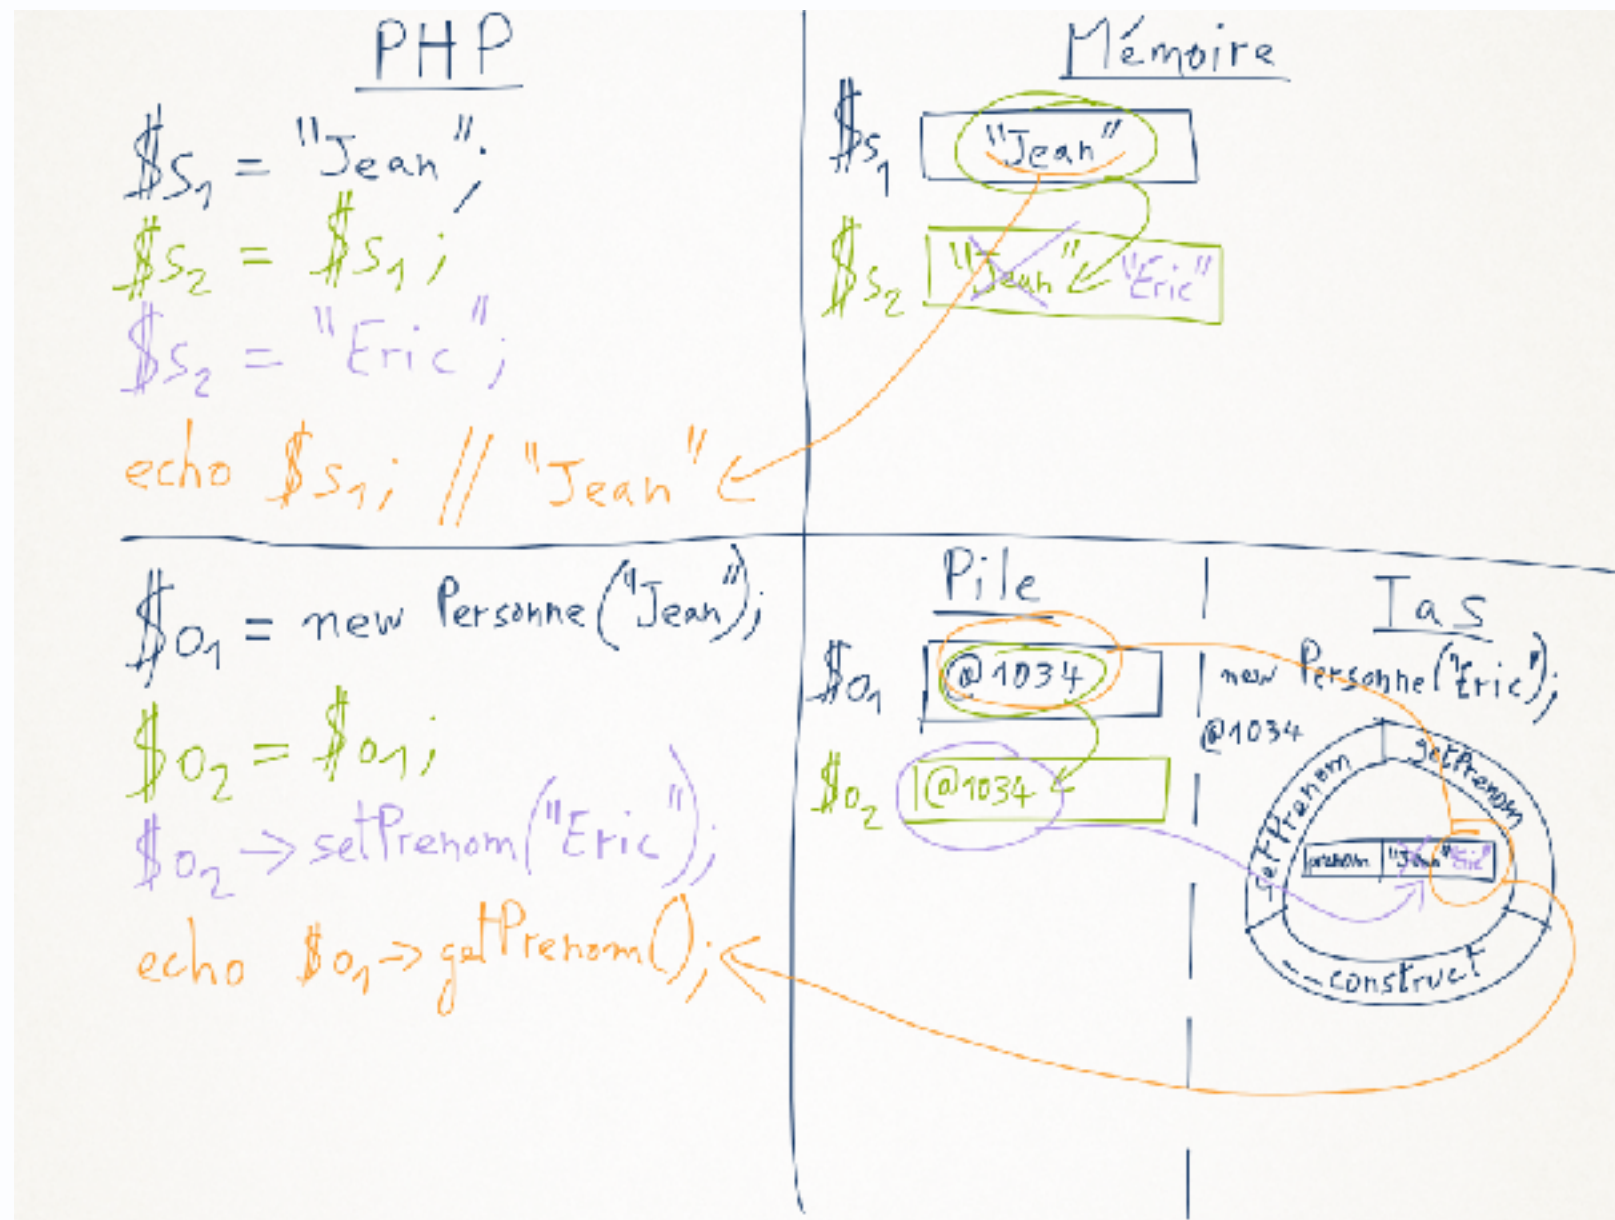 PHP
$s1 = "Jean";
$s2 = $s1;
$s2 = "Eric";
echo $s1; // "Jean"
Mémoire
$s1 "Jean"
$s2 "Jean" "Eric"
$o1 = new Personne("Jean");
$o2 = $o1;
$o2->setPrenom("Eric");
echo $o1->getPrenom();
Pile
$o1 @1034
$o2 @1034
Tas
new Personne("Eric");
@1034
getPrenom
getPrenom
prenom "Jean" "Eric"
__construct